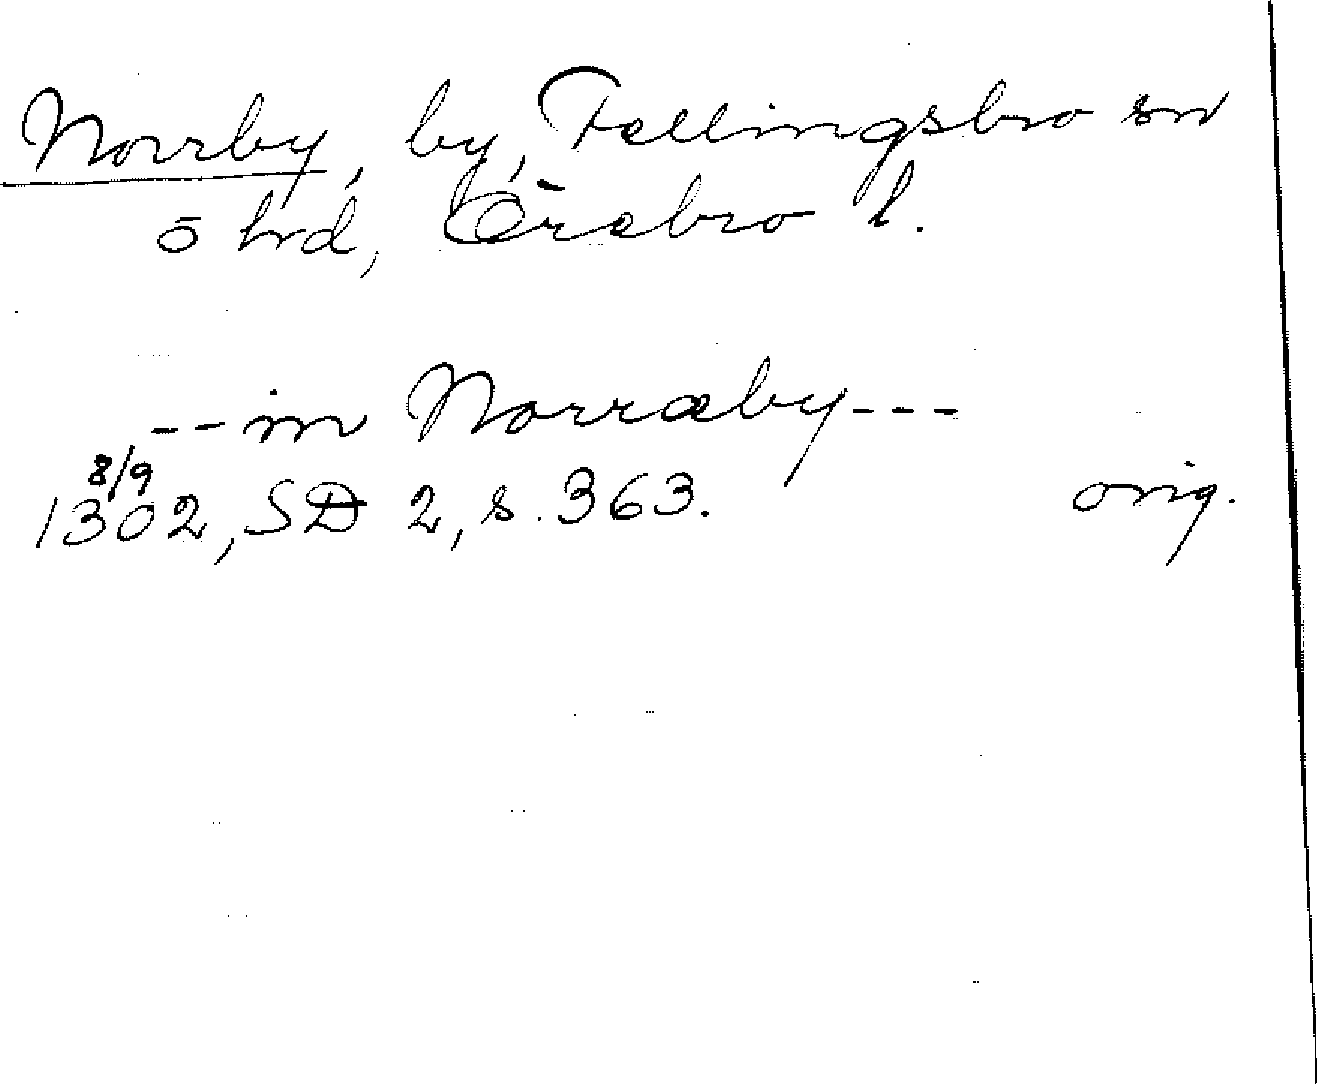 Norrby, by, Fellingsbro sn
ö hrd, Örebro l.
--in Norræby---
8/9
1302, SD 2, s. 363. orig.